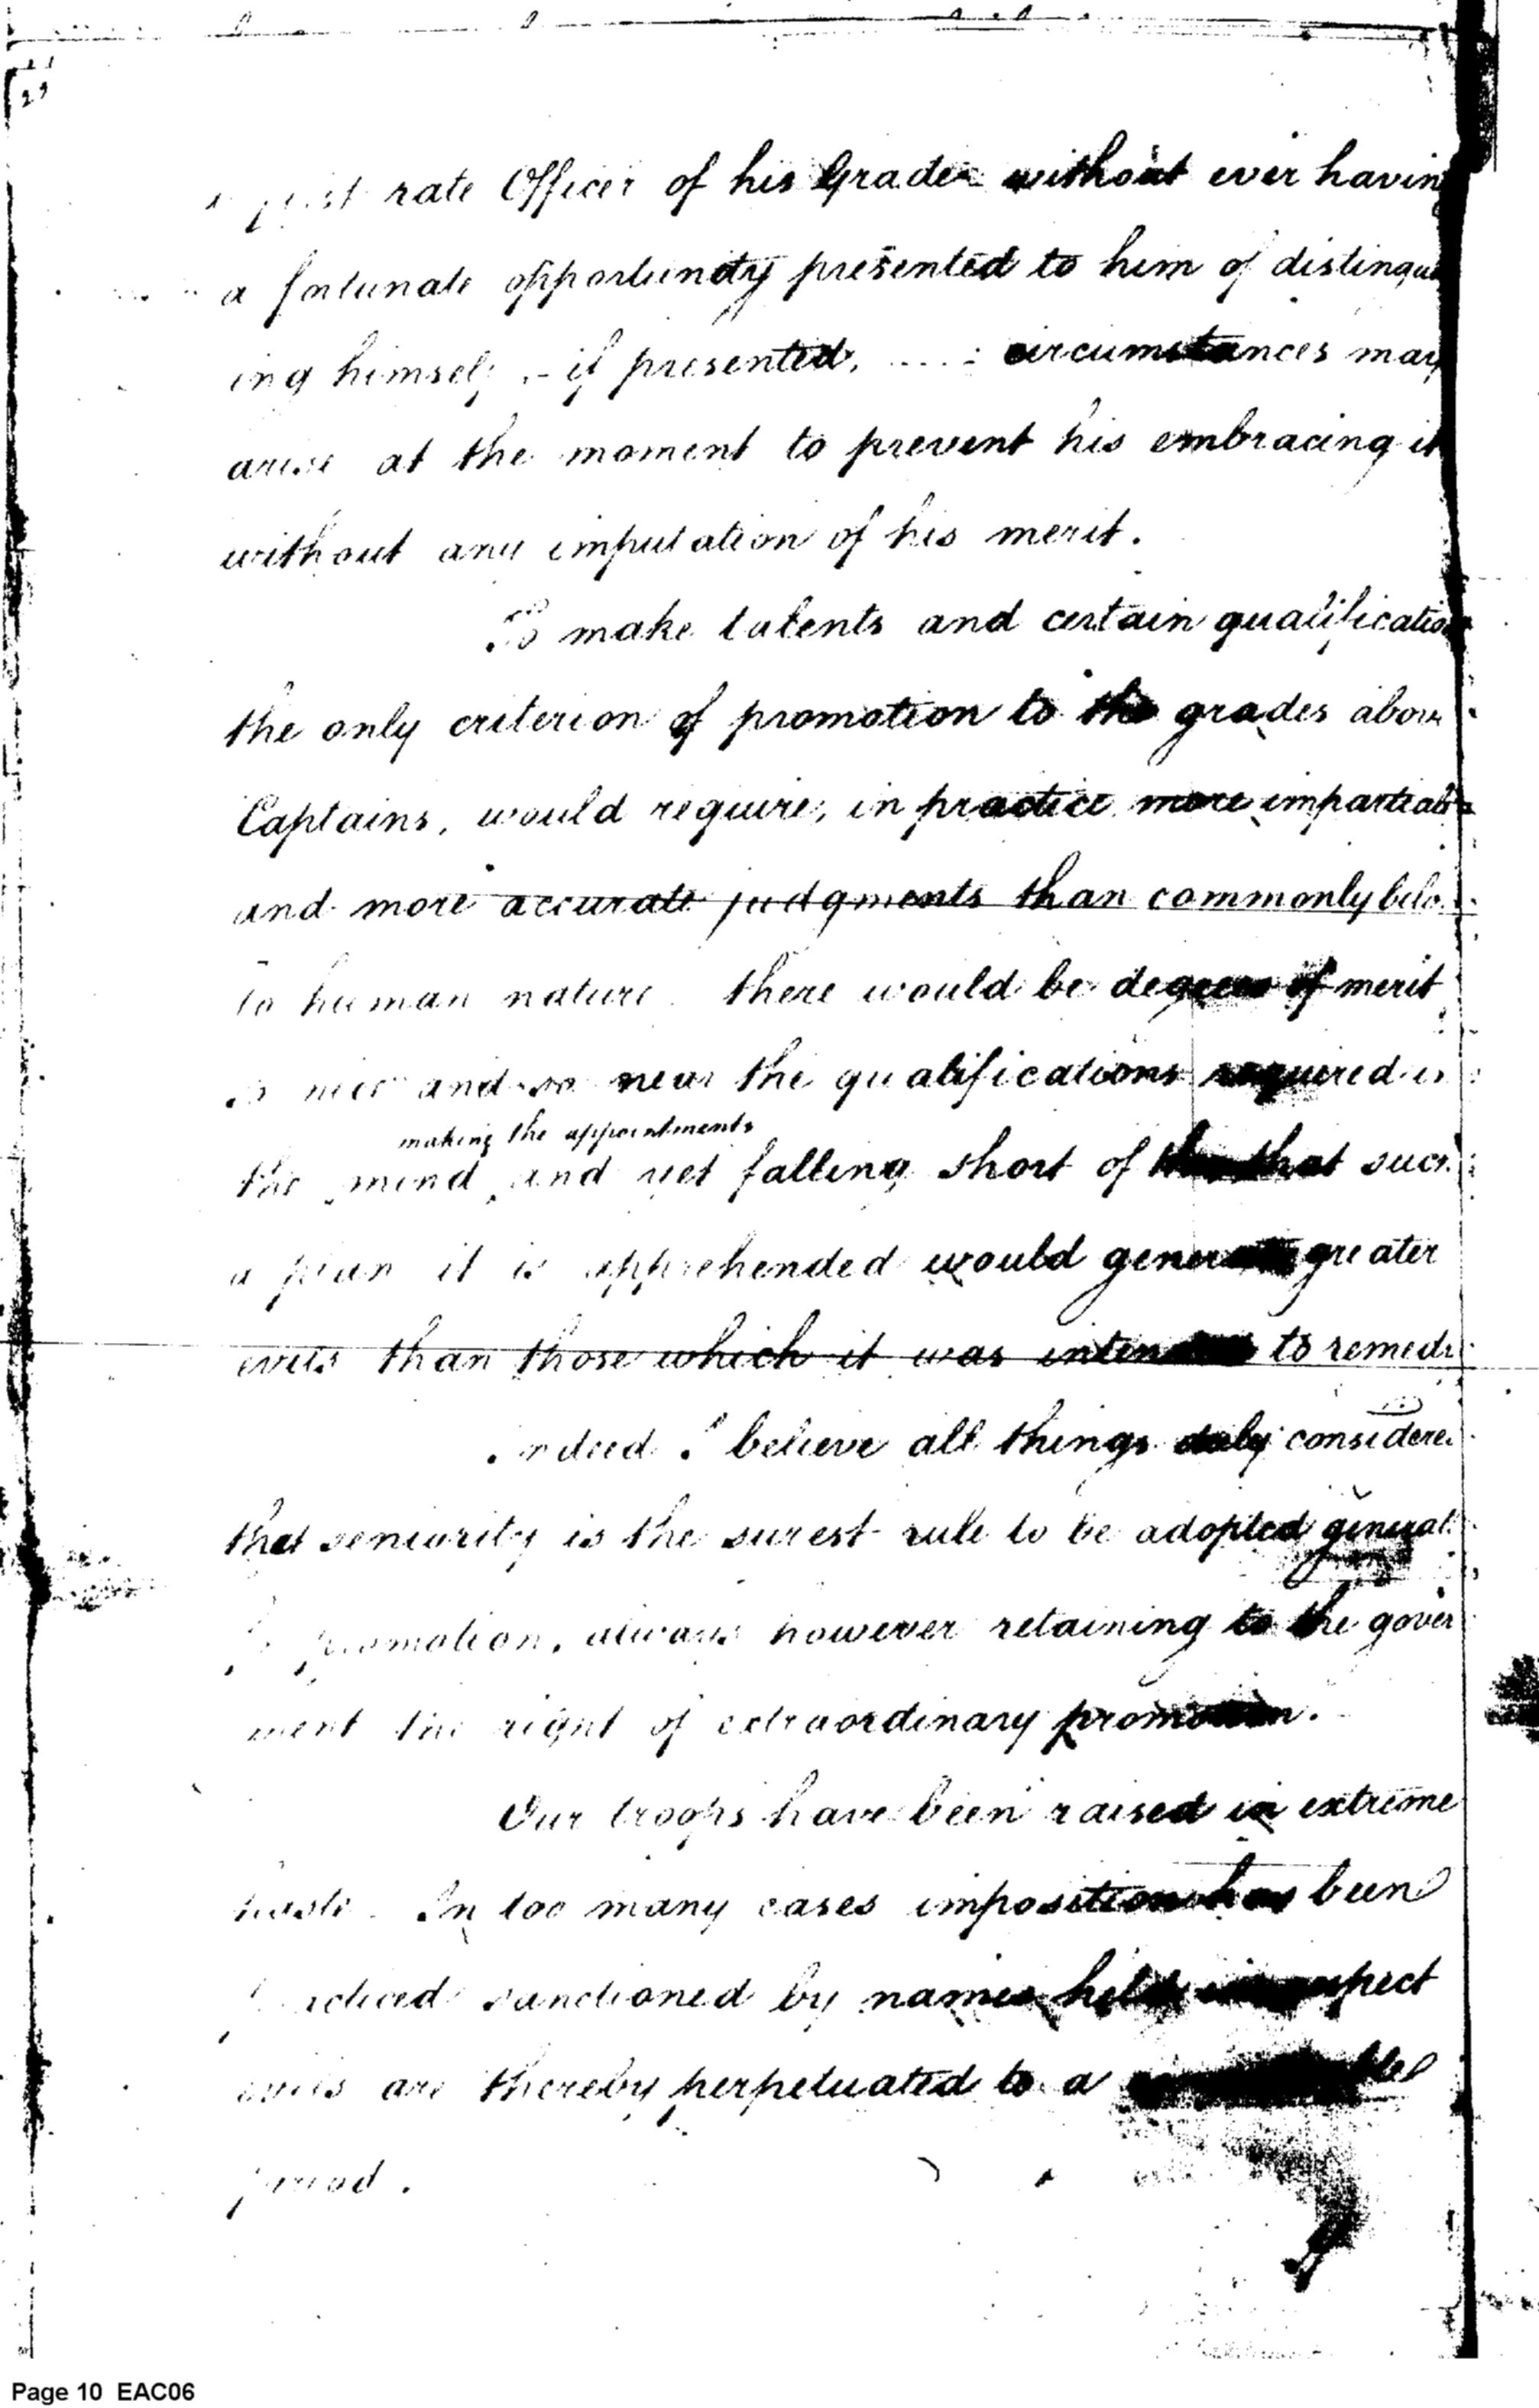 rate Officer of his Grade without ever having
a fortunate opportunity presented to him of distinguis
ing himself - if presented, circumstances may
arise at the moment to prevent his embracing it
without any imputation of his merit.
To make talents and certain qualification
the only criterion of promotion to the grades above
Captains, would require, in practice more impartial
and more accurate judgments than commonly belo
to human nature. there would be degrees of merit
so nice and so near the qualifications required in
making the appointments
the mind and yet falling short of that such
a plan it is apprehended would generate greater
evils than those which it was intended to remedy
Indeed I believe all things duly considered
that seniority is the surest rule to be adopted general
promotion, always however retaining to the govern
ment the right of extraordinary promotion.
Our troops have been raised in extreme
haste. In too many cases imposition has been
practiced sanctioned by names held in respect
evils are thereby perpetuated to a
period.
Page 10 EAC06